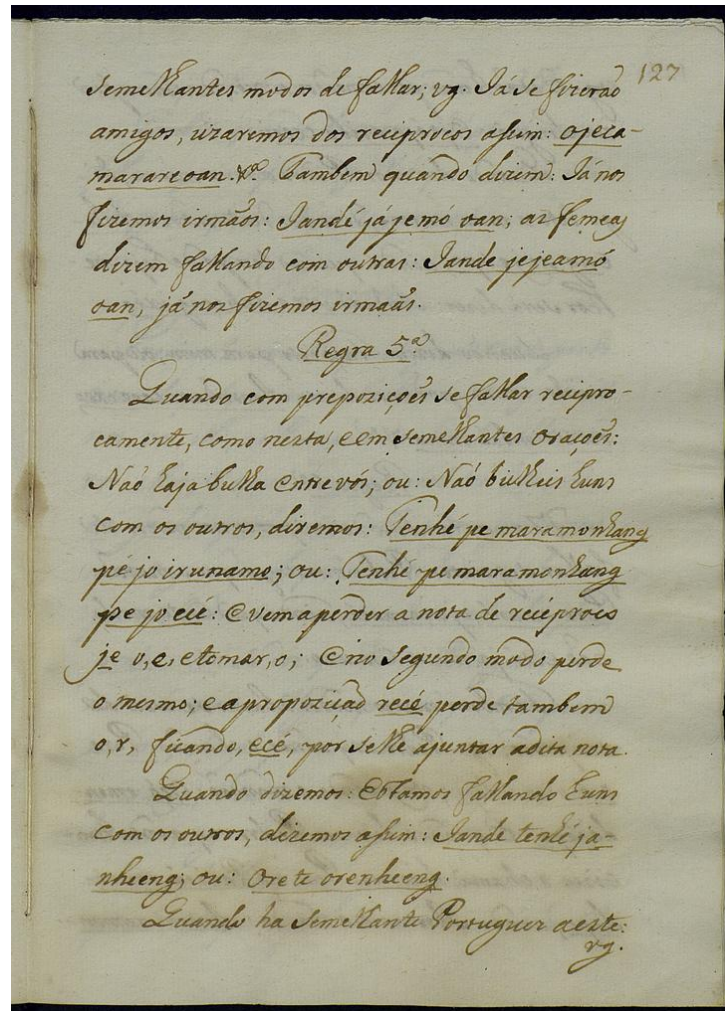 127
semelhantes modos de fallar; vg. Já se fizeraõ
amigos, uzaremos dos reciprocos assim: ojeca-
marareoan. &ª. Tambem quando dizem: Já nos
fizemos irmãos: Jandé já je mó oan; as femeas
dizem fallando com outras: Jande jejeamó
oan, já nos fizemos irmaãs.
Regra 5ª
Quando com prepoziçoẽs se fallar recipro-
camente, como nesta, e em semelhantes oraçoẽs:
Naõ haja bulha entre vós; ou: Naõ bulheis huns
com os outros, diremos: Tenhé pe maramonhang
pé jo irunamo; ou: Tenhé pe maramonhang
pe jo ecé: E vem a perder a nota de reciproco
je o, e, e tomar, o; E no segundo modo perde
o mesmo; e a propoziçaõ recé perde tambem
o, r, ficando, ecé, por se lhe ajuntar a dita nota.
Quando dizemos: Estamos fallando huns
com os outros, dizemos assim: Jande tenhé ja-
nheeng; ou: Ore te orenheeng.
Quando ha semelhante Portuguez a este:
vg.